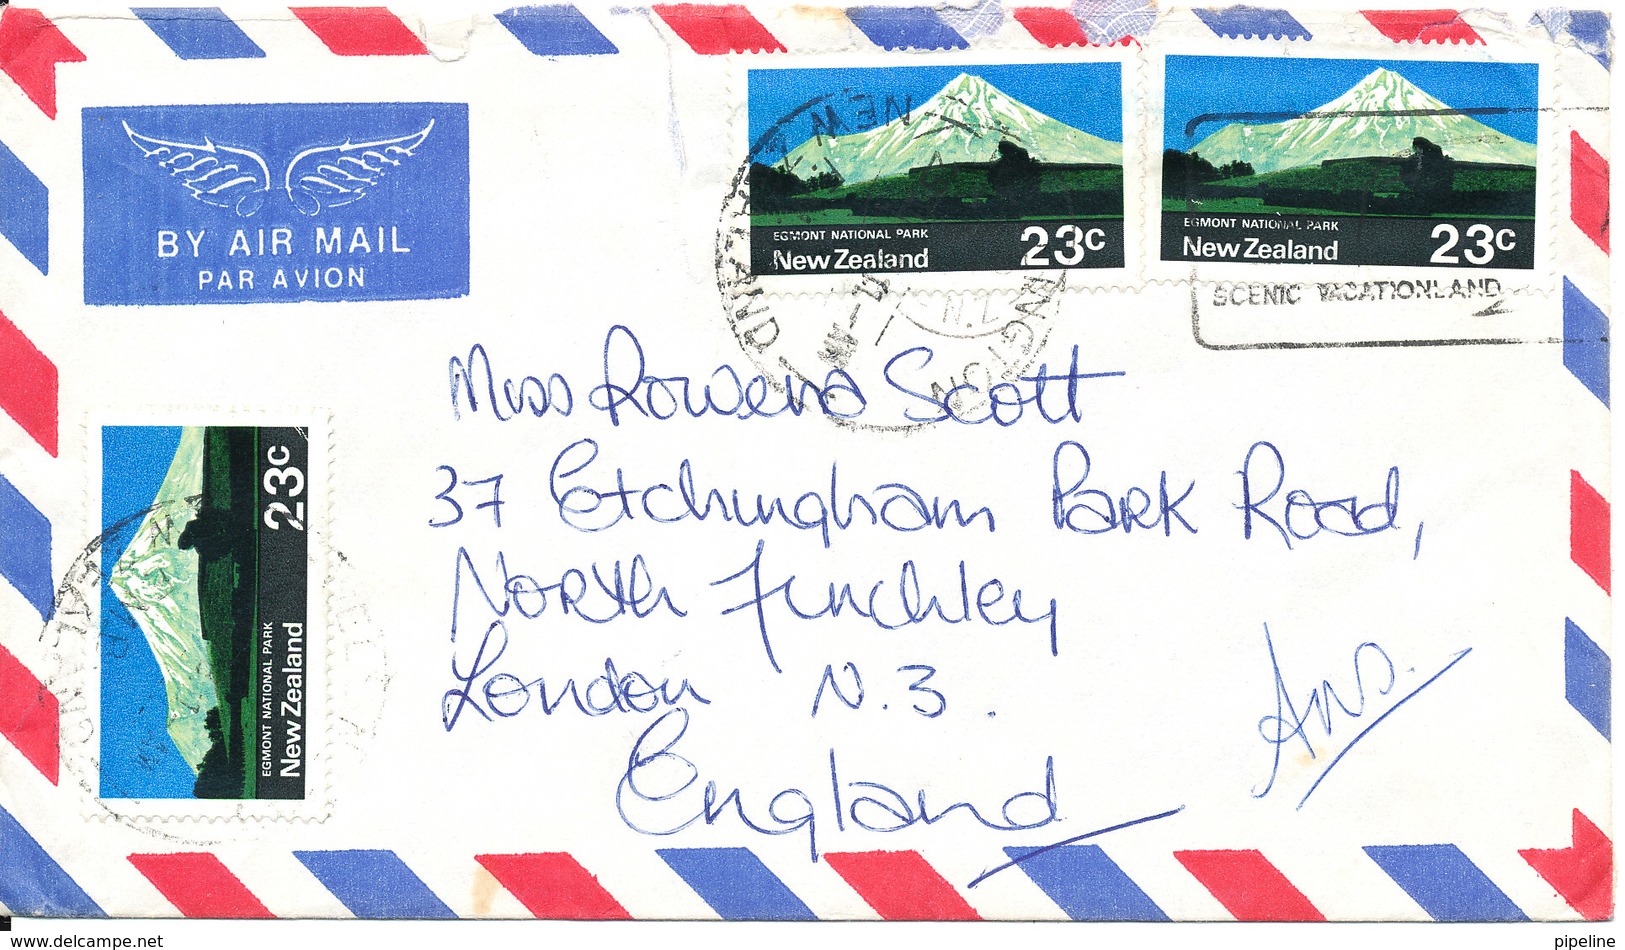 BY AIR MAIL
PAR AVION
EGMONT NATIONAL PARK
New Zealand 23c
EGMONT NATIONAL PARK
New Zealand 23c
SCENIC VACATIONLAND
NEW ZEALAND
Miss Rowena Scott
37 Etchingham Park Road,
North Finchley
London N.3.
England
Ans.
EGMONT NATIONAL PARK
New Zealand 23c
© www.delcampe.net
pipeline